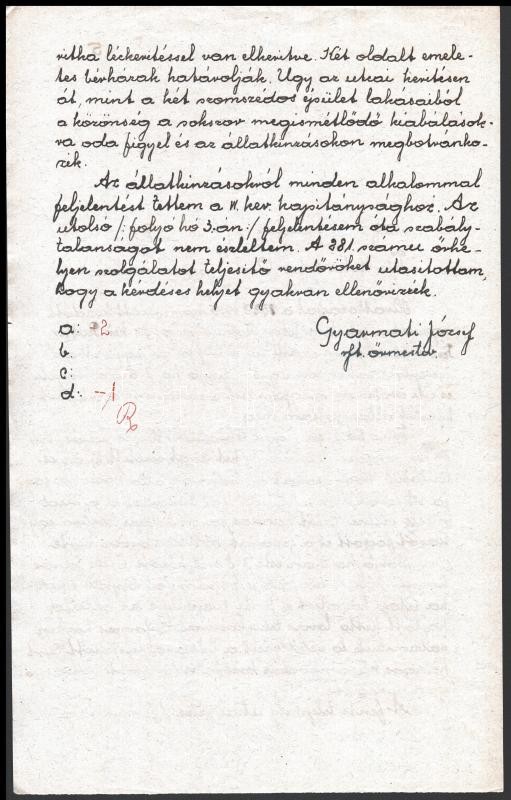 ritka léckerítéssel van elkerítve. Két oldalt emele-
tes bérházak határolják. Ugy az utcai kerítésen
át, mint a két szomszédos épület lakásaiból
a közönség a sokszor megismétlődő kiabálások-
ra oda figyel és az állatkinzásokon megbotránko-
zik.
Az állatkinzásokról minden alkalommal
feljelentést tettem a IV. ker. kapitánysághoz. Az
utolsó /: folyó hó 3.-án :/ feljelentésem óta szabály-
talanságot nem észleltem. A 381. számu őrhe-
lyen szolgálatot teljesitő rendőröket utasitottam,
hogy a kérdéses helyet gyakran ellenőrizzék.
a: -2
b.
c:
d: -1
Gyarmati József
őrmester.